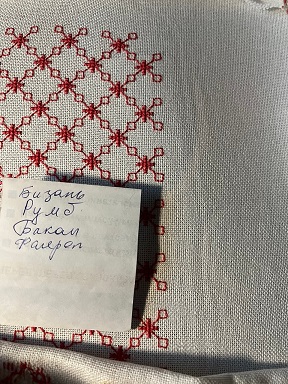 Бизань
Румб
Бакал
Фалреп